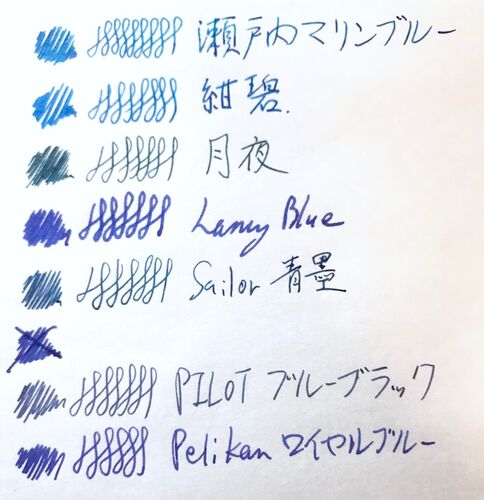 瀬戸内マリンブルー
紺碧.
月夜
Lamy Blue
Sailor 青墨
PILOT ブルーブラック
Pelikan ロイヤルブルー